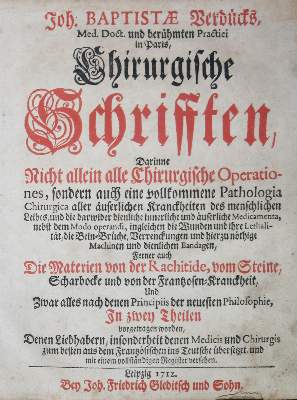 Joh. BAPTISTÆ Verducks,
Med. Doct. und berühmten Practici
in Paris,
Chirurgische
Schrifften,
Darinne
Nicht allein alle Chirurgische Operatio-
nes, sondern auch eine vollkommene Pathologia
Chirurgica aller äuserlichen Kranckheiten des menschlichen
Leibes, und die darwider dienliche innerliche und äuserliche Medicamenta,
nebst dem Modo operandi, ingleichen die Wunden und ihre Lethali-
tät, die Bein-Brüche, Verrenckungen und hierzu nöthige
Machinen und dienlichen Bandagen,
Ferner auch
Die Materien von der Rachitide, vom Steine,
Scharbocke und von der Frantzosen-Kranckheit,
Und
Zwar alles nach denen Principiis der neuesten Philosophie,
In zwey Theilen
vorgetragen worden,
Denen Liebhabern, insonderheit denen Medicis und Chirurgis
zum besten aus dem Frantzösischen ins Teutsche übersetzet, und
mit einem vollständigen Register versehen.
Leipzig 1712.
Bey Joh. Friedrich Gleditsch und Sohn.